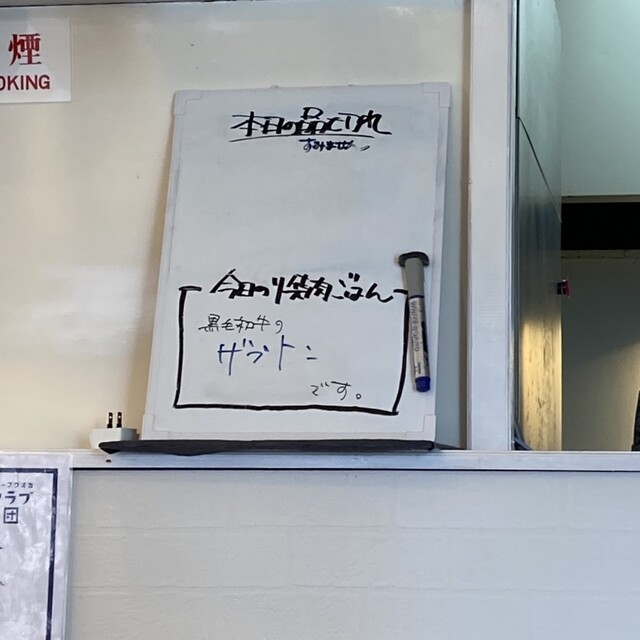 煙
OKING
本日の品切れ
すみません
今日の焼肉ごはん
黒毛和牛の
ザブトン
です。
ラブ
団